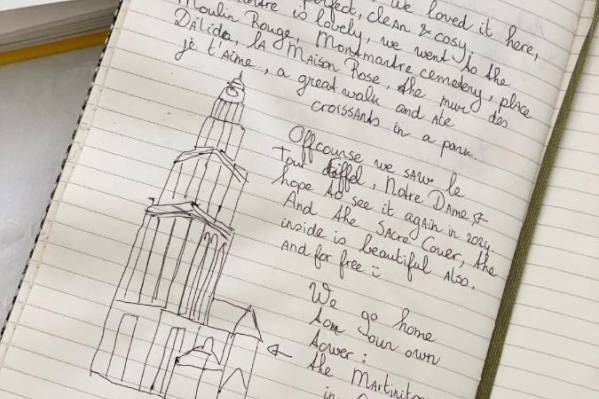 perfect, clean & cosy. we loved it here,
is lovely, we went to the
Moulin Rouge, Montmartre cemetery, place
Dalida, la Maison Rose, the mur des
je t'aime, a great walk and ate
croissants in a park.
Offcourse we saw le
Tour Eiffel, Notre Dame &
hope to see it again in 2024.
And the Sacre Couer, the
inside is beautiful also.
And for free :
We go home
to our own
tower :
the Martinito
in